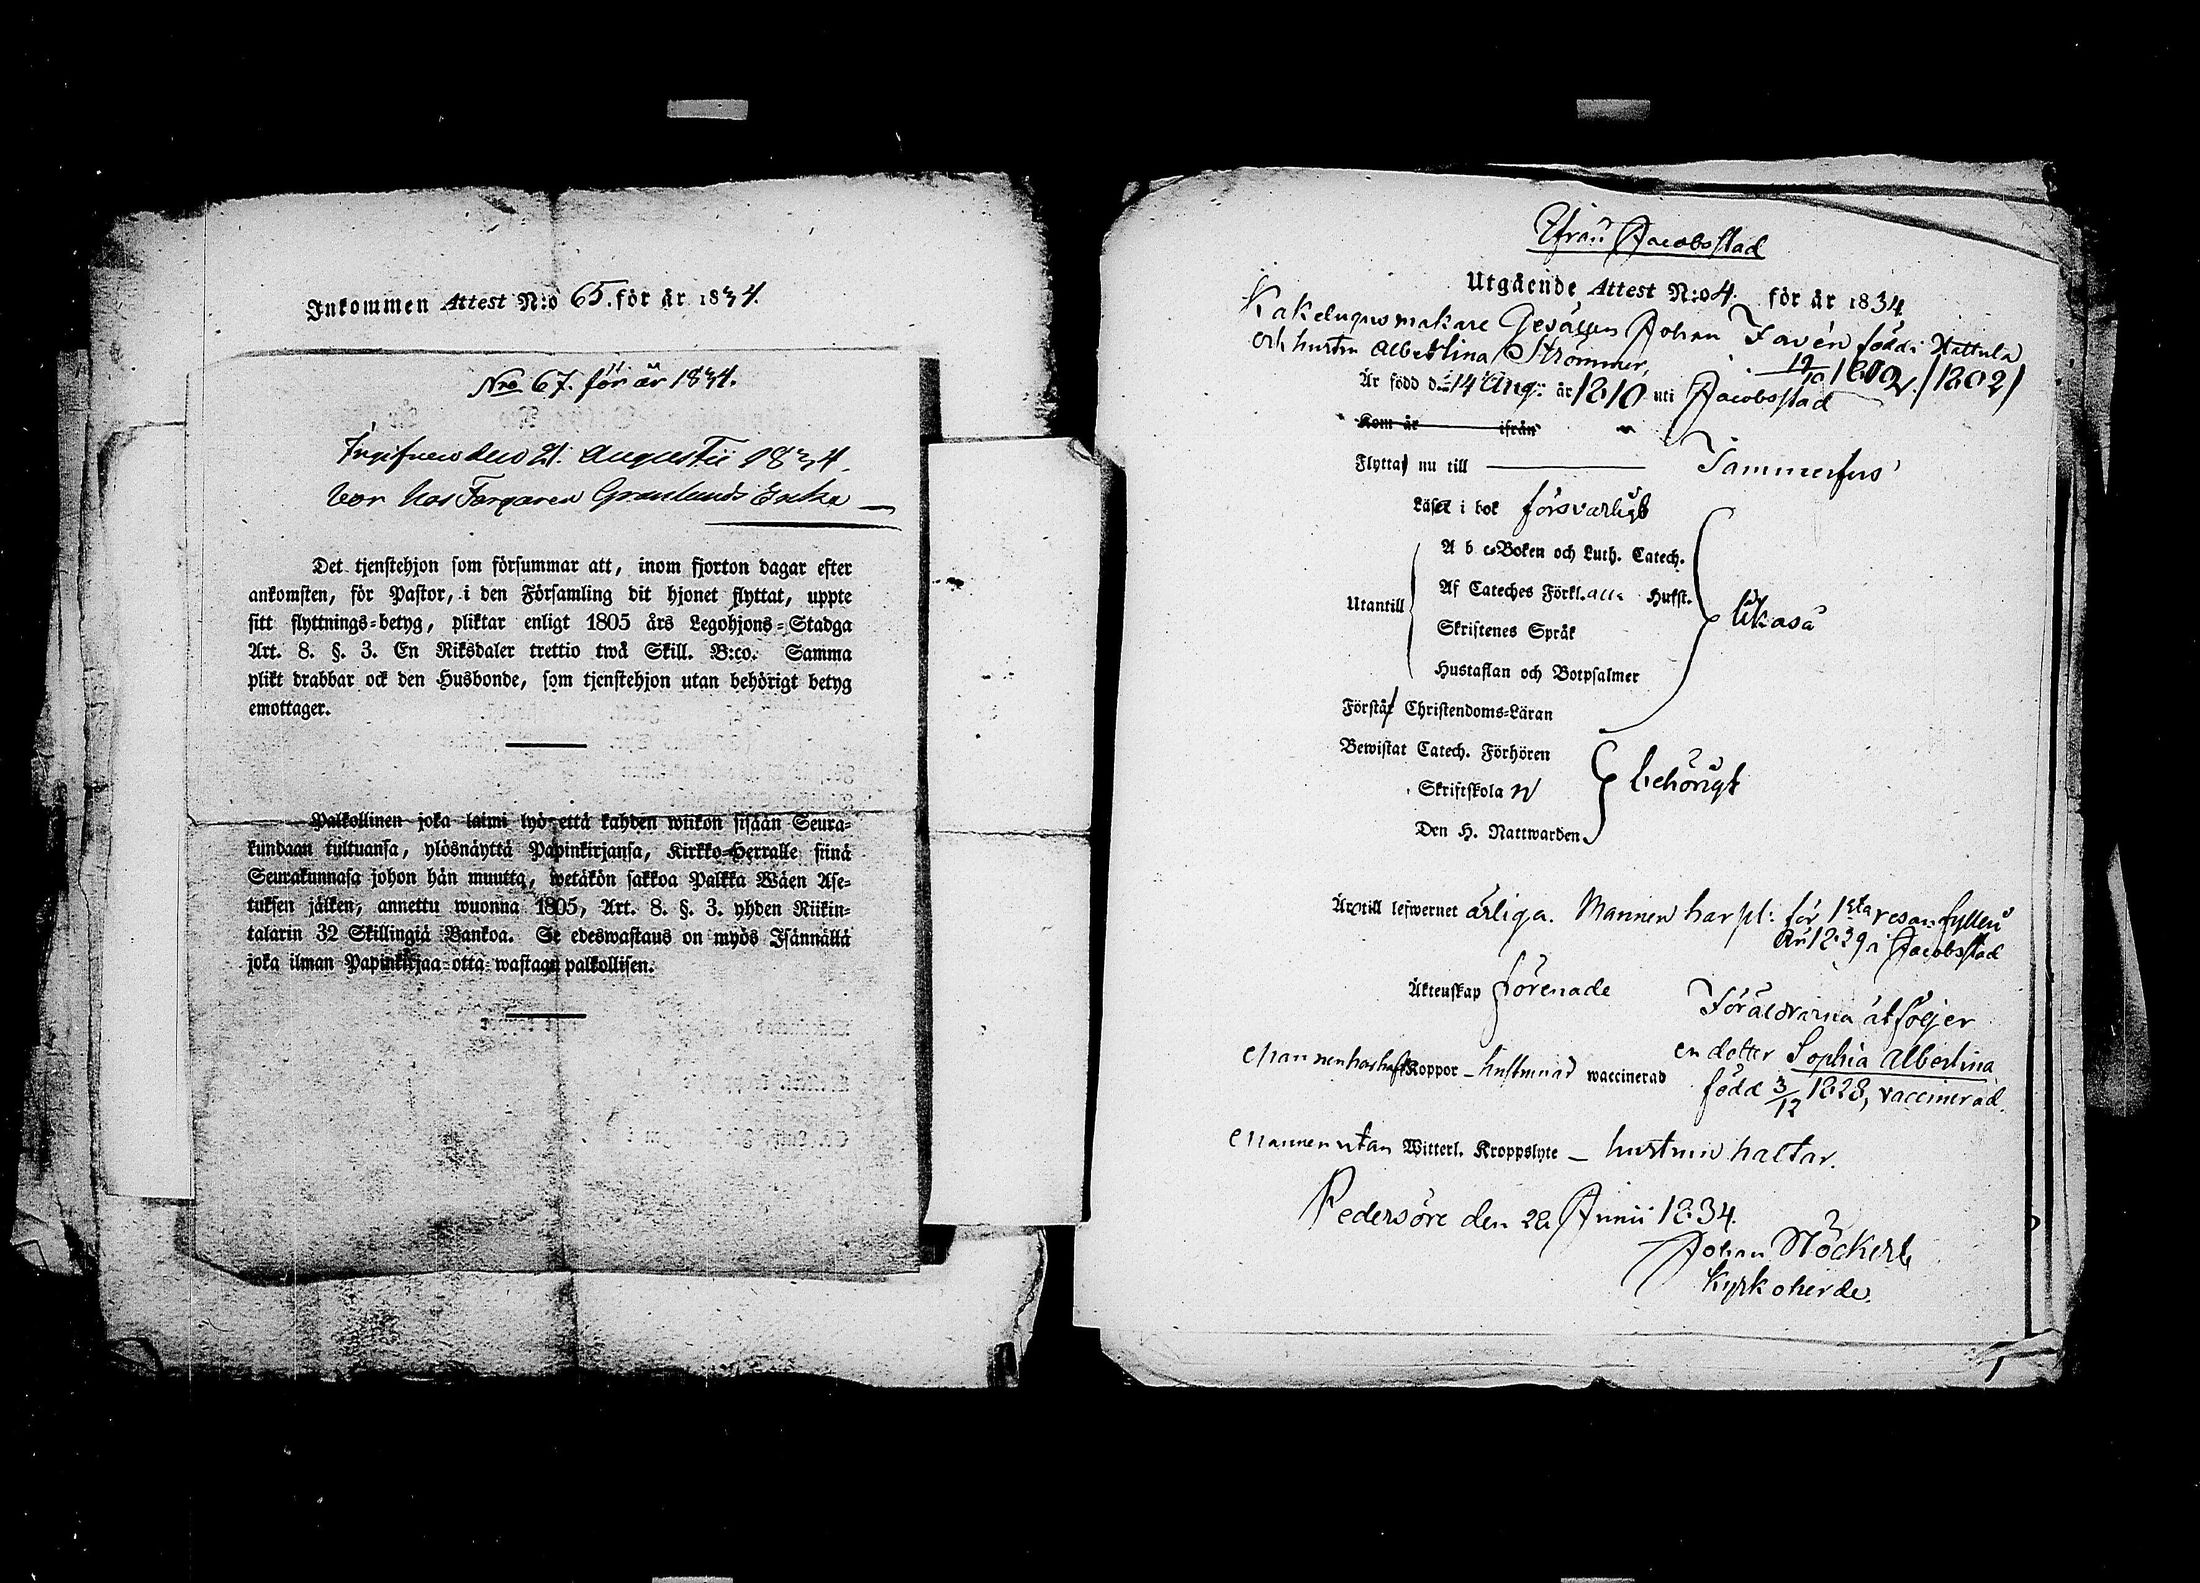 Inkommen Attest N:o 65. för år 1834.
Nro 67. för år 1834.
Ingifven den 21. Augustii 1834.
bor hos Fargaren Granlunds Enka —
Det tjenstehjon som försummar att, inom fjorton dagar efter
ankomsten, för Pastor, i den Församling dit hjonet flyttat, uppte
sitt flyttnings-betyg, pliktar enligt 1805 års Legohjons-Stadga
Art. 8. §. 3. En Riksdaler trettio twå Skill. B:co. Samma
plikt drabbar ock den Husbonde, som tjenstehjon utan behörigt betyg
emottager.
Palkollinen joka laimi lyö että kahden wiikon sisään Seura-
kundaan tultuansa, ylösnäyttä Papinkirjansa, Kirkko-Herralle siinä
Seurakunnasa johon hän muutta, wetäkön sakkoa Palkka Wäen Ase-
tuksen jälken, annettu wuonna 1805, Art. 8. §. 3. yhden Riikin-
talarin 32 Skillingiä Bankoa. Se edeswastaus on myös Isännällä
joka ilman Papinkirjaa otta wastaan palkollisen.
Ifrån Jacobsstad
Utgående Attest N:o 4. för år 1834
Kakelugnsmakare Gesällen Johan Favén född i Hattula
och hustru Albertina Strömmer, 19/10 1802. /1802/
Är född d. 14 Aug: år 1810 uti Jacobsstad
Kom år ifrån
Flytta nu till Tammerfors
Läser i bok försvarligt
A b c-Boken och Luth. Catech.
Af Cateches Förkl. alla Hufst.
Utantill
Skriftenes Språk
likaså
Hustaflan och Botpsalmer
Förstår Christendoms-Läran
Bewistat Catech. Förhören
Skriftskola
behörigt
Den H. Nattwarden
Äro till lefwernet ärliga. Mannen har pl: för 1sta resan fylleri
År 1829 i Jacobsstad
Äktenskap förenade
Föräldrarna åtföljer
en dotter Sophia Albertina
Mannen har haft Koppor – hustrun är waccinerad
född 3/12 1828, vaccinerad.
Mannen utan Witterl. Kroppslyte – hustrun haltar.
Pedersöre den 28 Junii 1834.
Johan Höckert
Kyrkoherde.